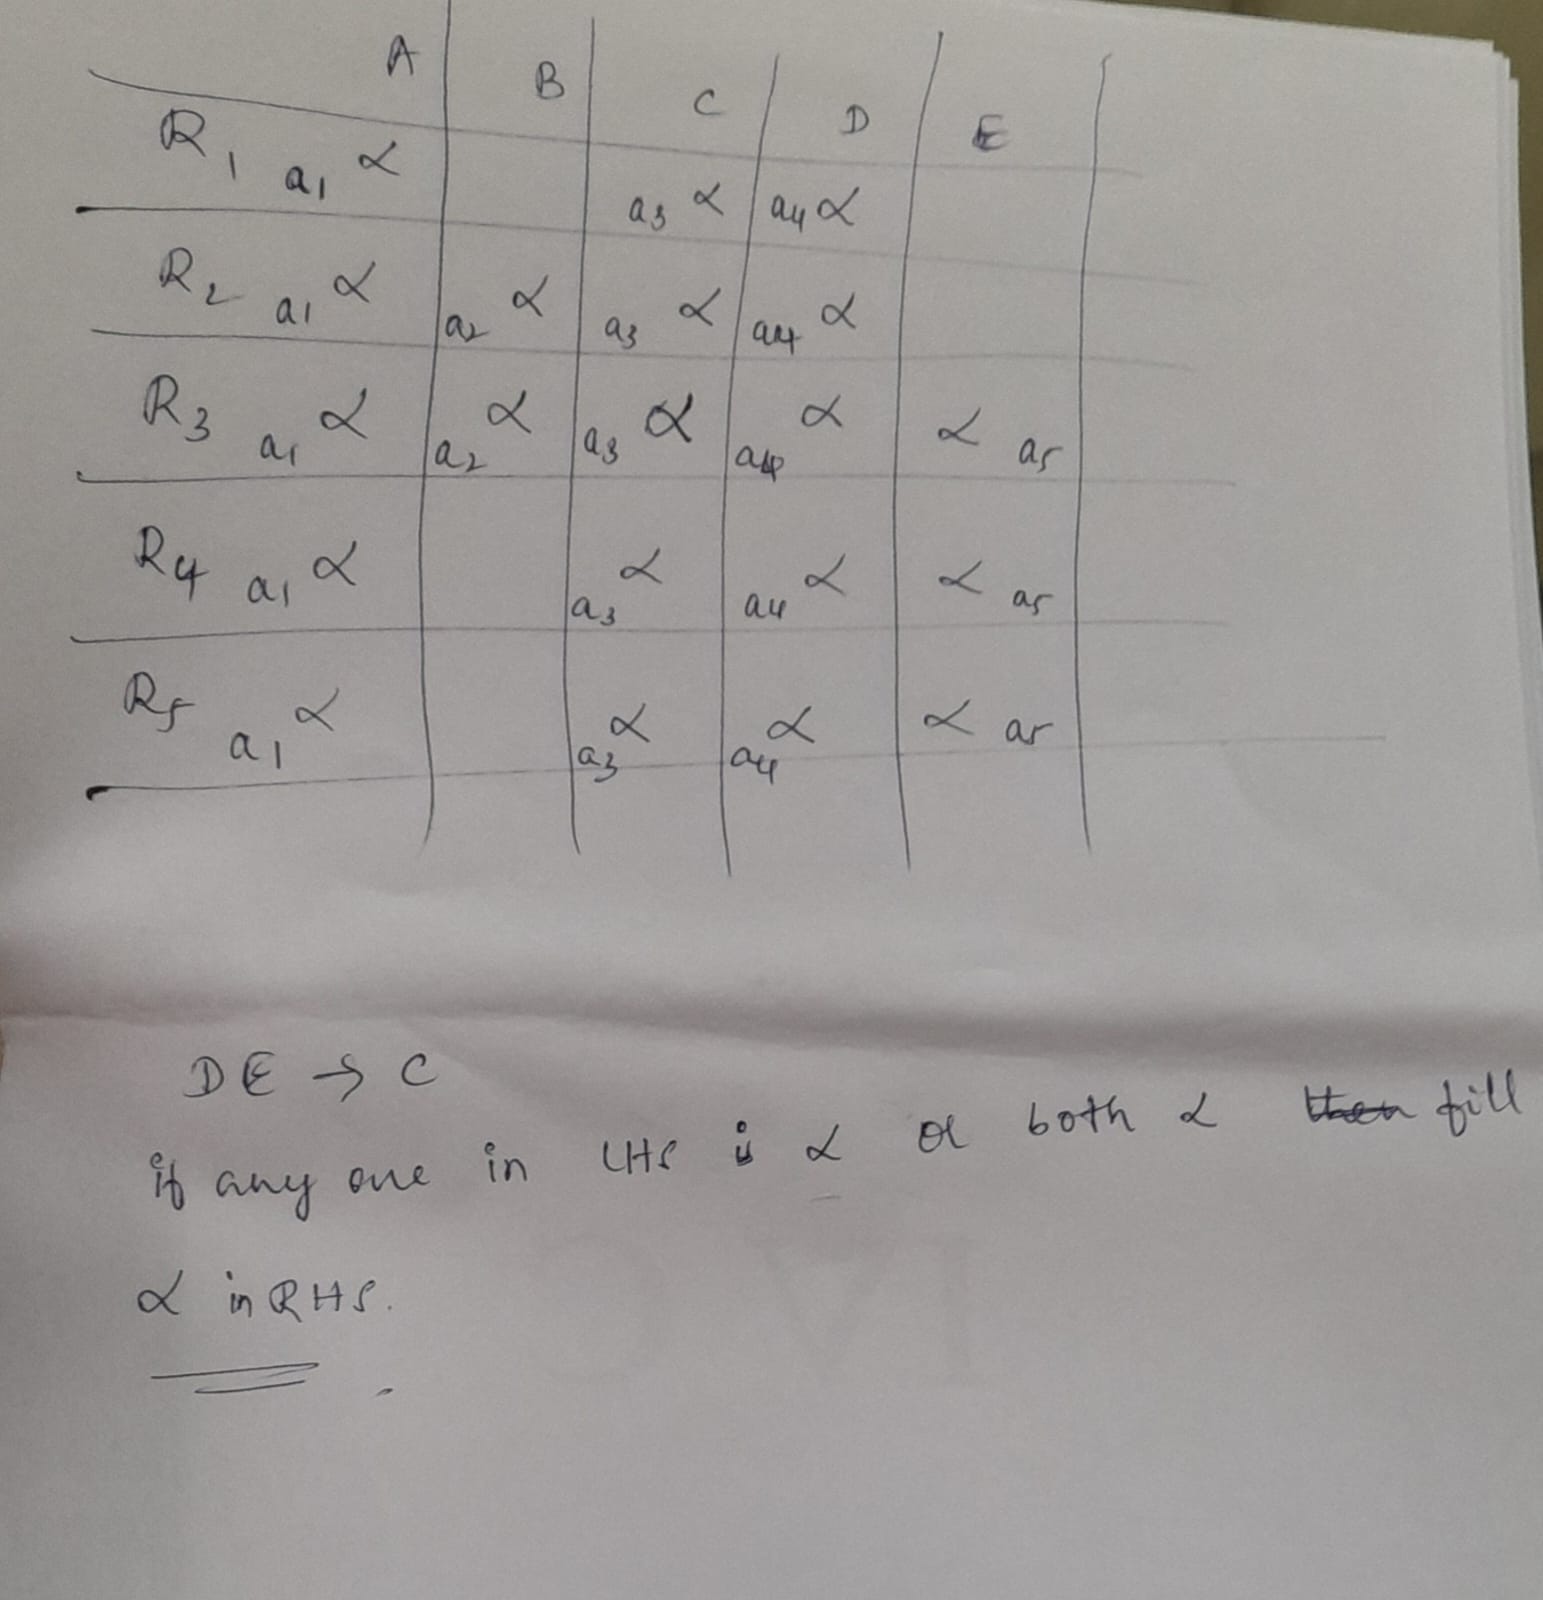 A B C D E
R1 a1 α a3 α a4 α
R2 a1 α a2 α a3 α a4 α
R3 a1 α a2 α a3 α a4 α α a5
R4 a1 α a3 α a4 α α a5
R5 a1 α a3 α a4 α α a5
DE → C
if any one in LHS is α or both α then fill
α in RHS.